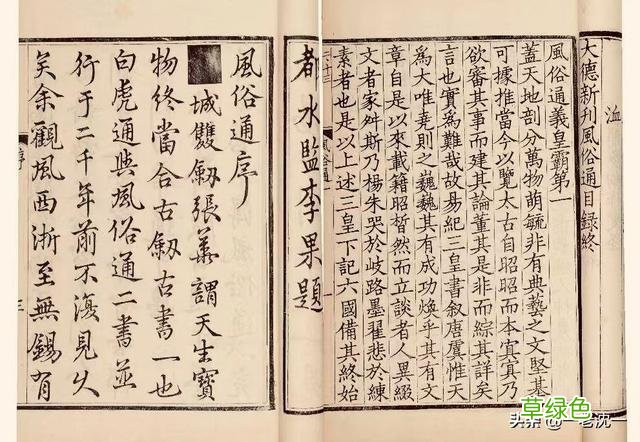 大德新刊風俗通目録終
洫
風俗通義皇霸第一
蓋天地剖分萬物萌毓非有典藝之文堅基
可據推當今以覽太古自昭昭而本㝠㝠乃
欲審其事而建其論董其是非而綜其詳矣
言也實為難哉故易紀三皇書叙唐虞惟天
為大唯堯則之巍巍其有成功煥乎其有文
章自是以來載籍昭晢然而立談者人異綴
文者家舛斯乃楊朱哭於歧路墨翟悲於練
素者也是以上述三皇下記六國備其終始
風俗通
一
都水監李果題
風俗通序
城雙劔張華謂天生寶
物終當合古劔古書一也
白虎通與風俗通二書並
行于二千年前不復見久
矣余觀風西浙至無錫有
序
三
头条 @一老沈一
草绿色